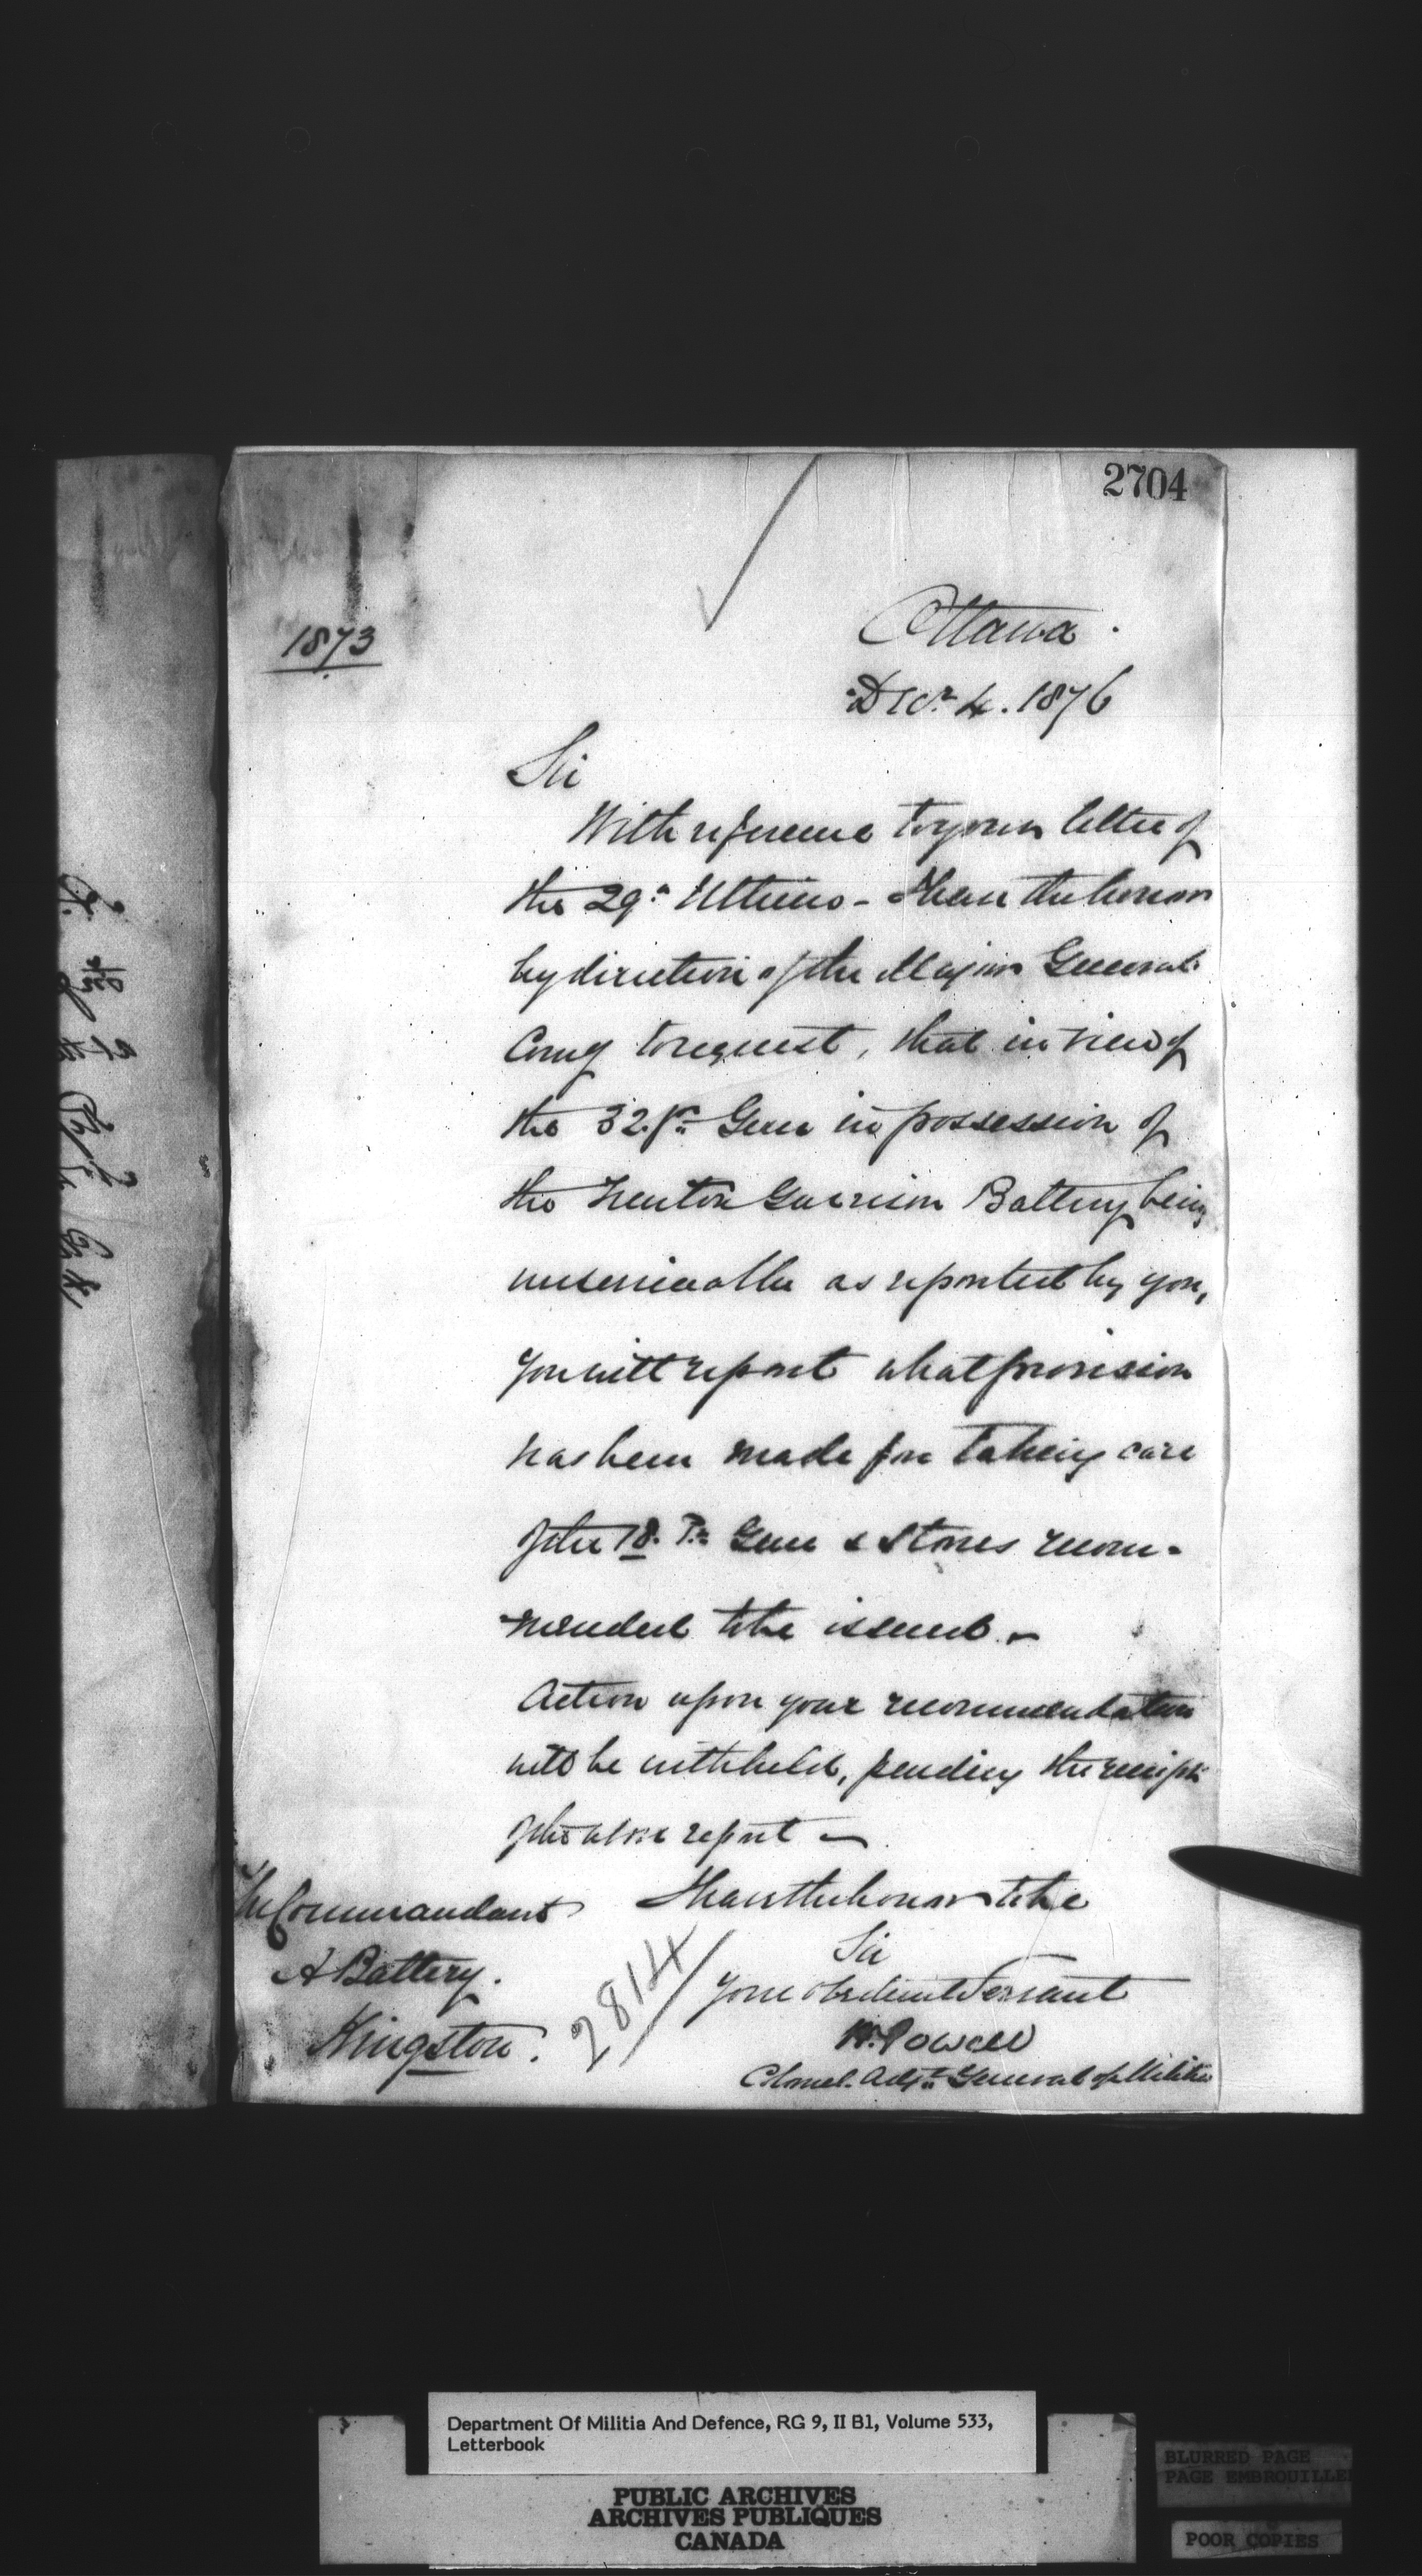 2704
1873
Ottawa.
Decr. 4. 1876
Sir
With reference to your letter of
the 29th Ultimo - I have the honor
by direction of the Major General
Comg to request, that in view of
the 32 pr. Gun in possession of
the Trenton Garrison Battery being
unserviceable as reported by you,
you will report what provision
has been made for taking care
of the 18. Pr. Gun & Stores recom-
mended to be issued -
Action upon your recommendation
will be withheld, pending the receipt
of the above report -
I have the honor to be
Sir
Your obedient Servant
W. Powell
Colonel. Adjt. General of Militia
The Commandant
A Battery.
Kingston.
2814
Department Of Militia And Defence, RG 9, II B1, Volume 533,
Letterbook
PUBLIC ARCHIVES
ARCHIVES PUBLIQUES
CANADA
BLURRED PAGE
PAGE EMBROUILLE
POOR COPIES